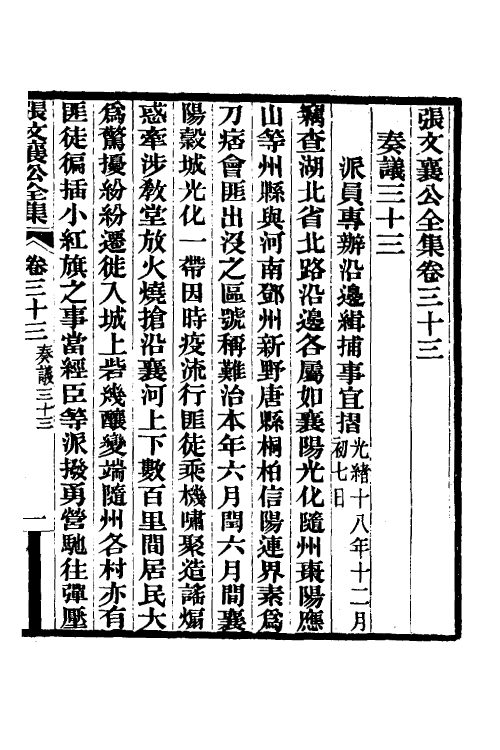 張文襄公全集卷三十三
奏議三十三
派員專辦沿邊緝捕事宜摺光緒十八年十二月初七日
竊查湖北省北路沿邊各屬如襄陽光化隨州棗陽應
山等州縣與河南鄧州新野唐縣桐柏信陽連界素為
刀痞會匪出沒之區號稱難治本年六月閏六月間襄
陽穀城光化一帶因時疫流行匪徒乘機嘯聚造謠煽
惑牽涉教堂放火燒搶沿襄河上下數百里間居民大
為驚擾紛紛遷徙入城上砦幾釀變端隨州各村亦有
匪徒徧插小紅旗之事當經臣等派撥勇營馳往彈壓
張文襄公全集 卷三十三 奏議三十三 一